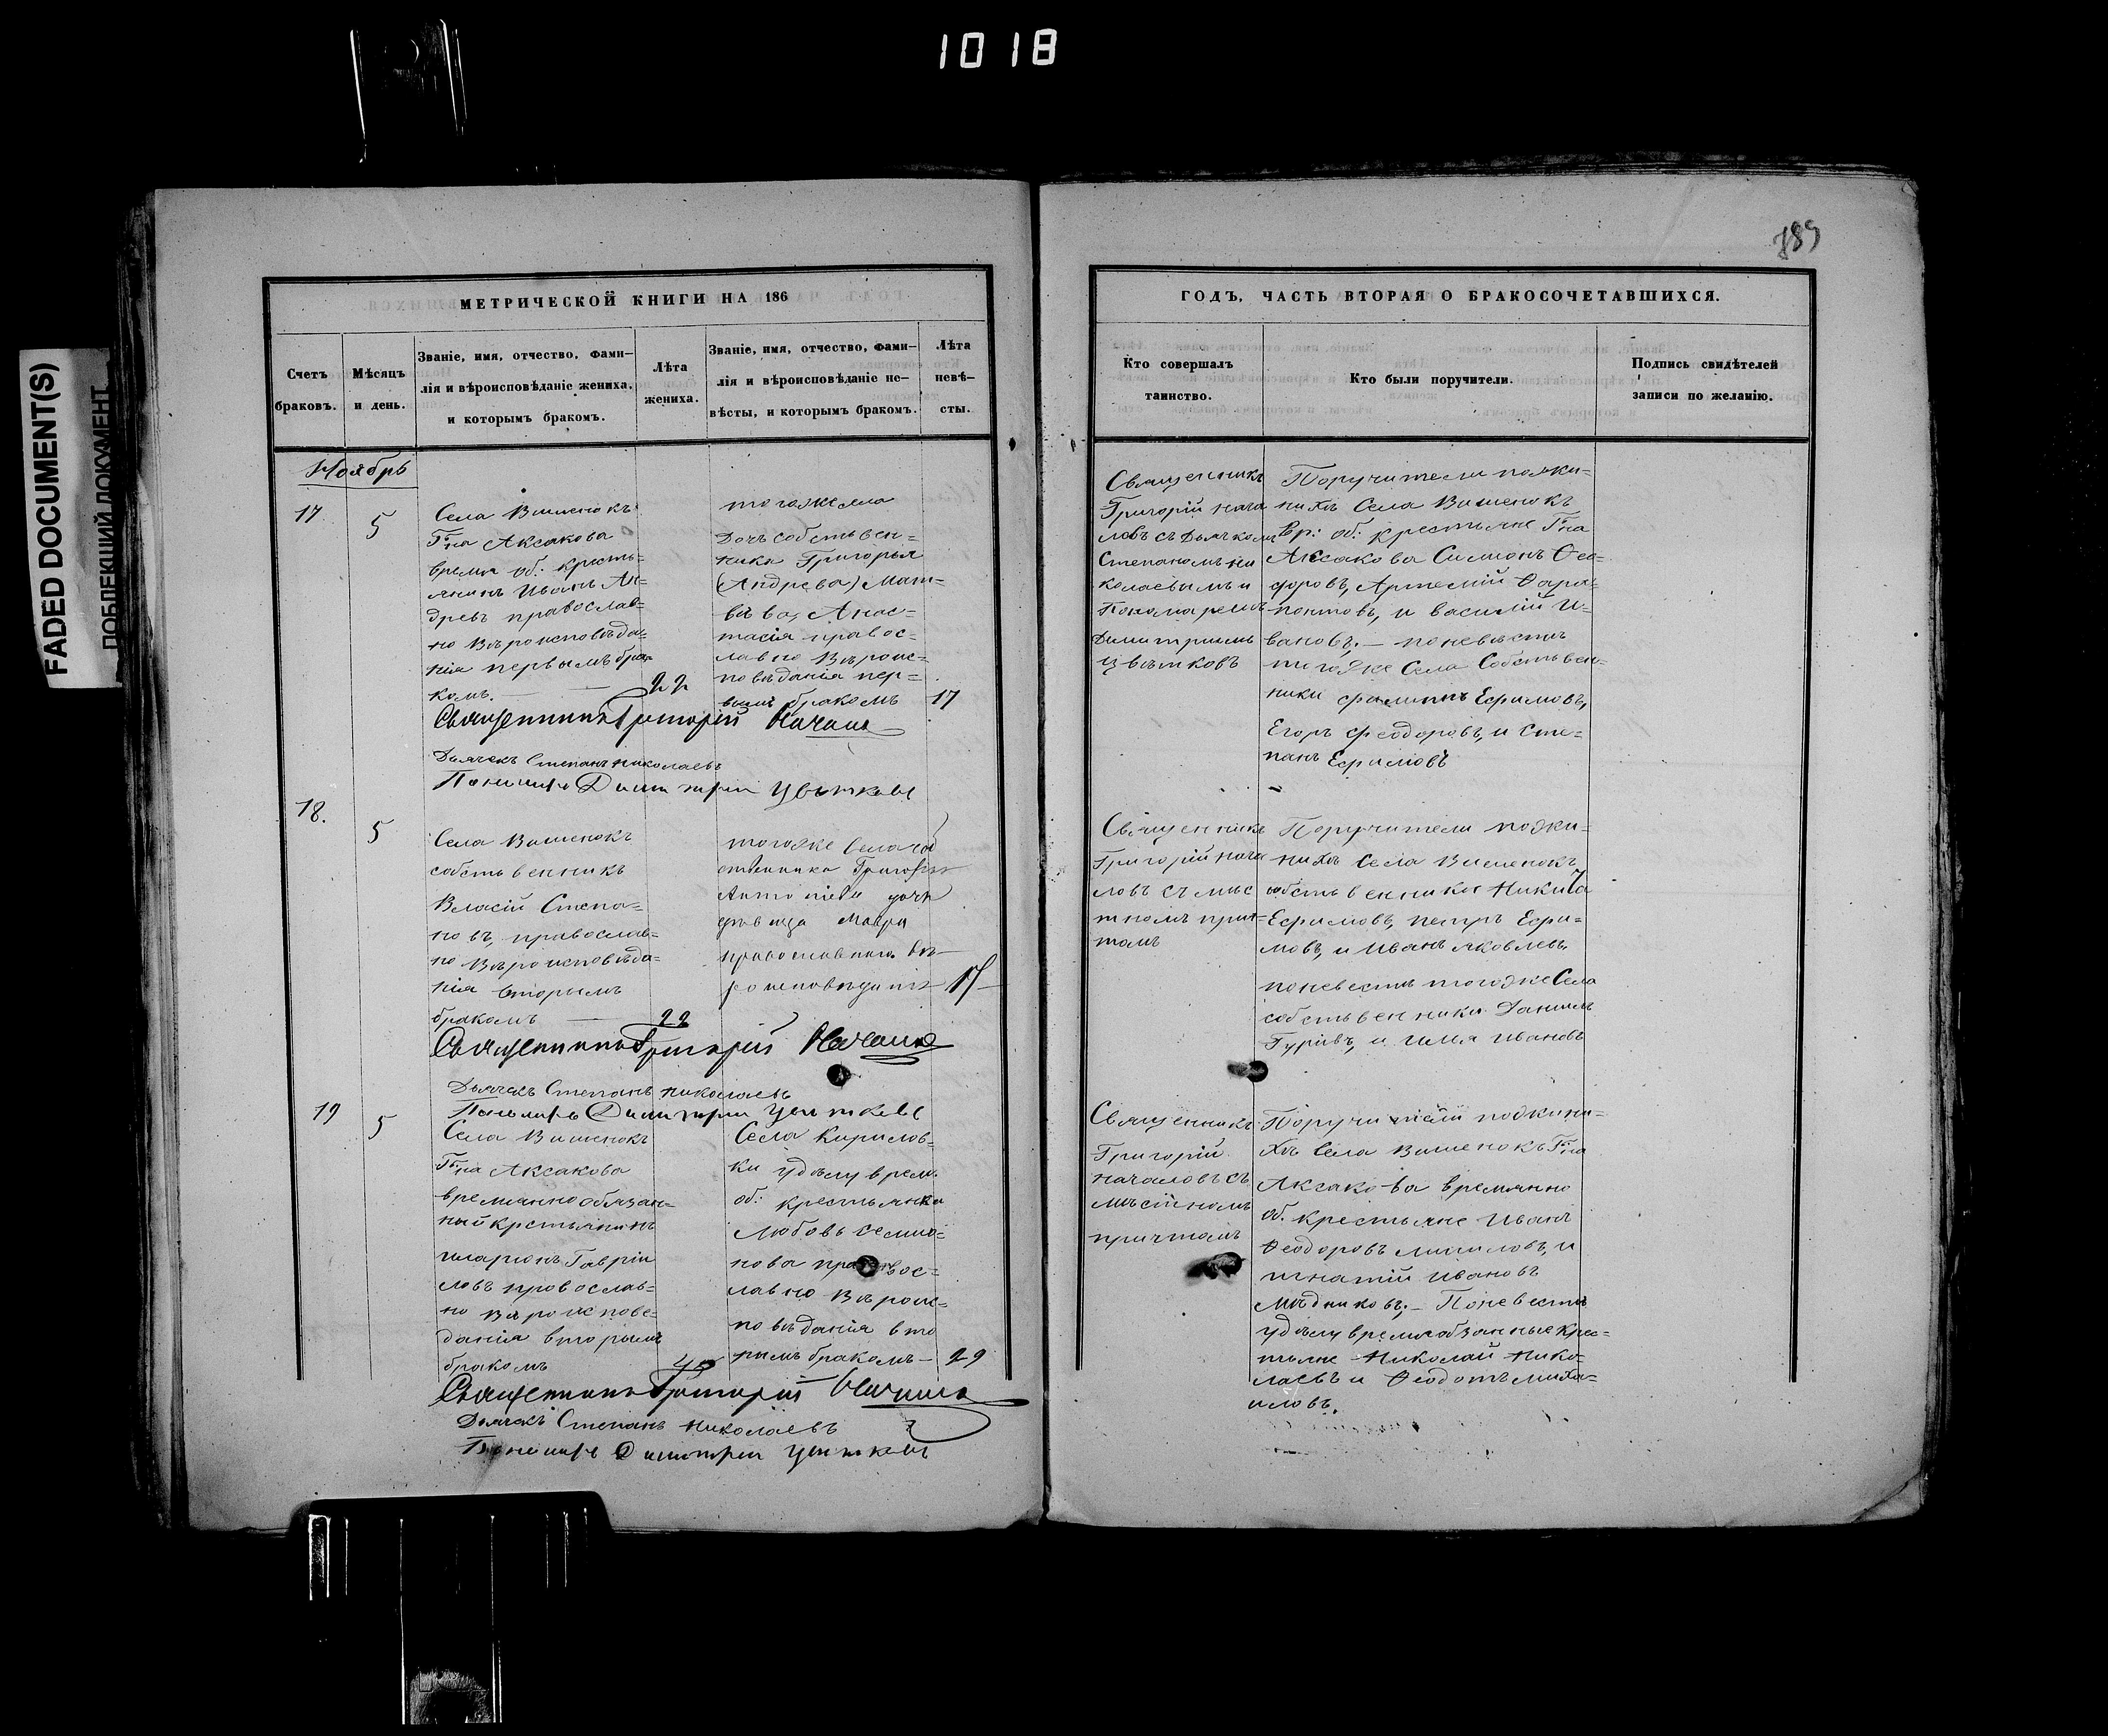 1018
FADED DOCUMENT(S)
ПОБЛЕКШИЙ ДОКУМЕНТ
МЕТРИЧЕСКОЙ КНИГИ НА 186
Счетъ
браковъ.
Мѣсяцъ
и день.
Званіе, имя, отчество, фами-
лія и вѣроисповѣданіе жениха.
и которымъ бракомъ.
Лѣта
жениха.
Званіе, имя, отчество, фами-
лія и вѣроисповѣданіе не-
вѣсты, и которымъ бракомъ.
Лѣта
невѣ-
сты.
Ноябрь
17
5
Села Вишенокъ
Г:на Аксакова
времен об: кресть-
янинъ Иванъ Ан-
древъ православ-
но Вѣроисповѣда-
нія первымъ бра-
комъ.
22
тогоже села
Дочь собствен-
ника Григорья
(Андрева) Мат-
вѣва, Анас-
тасія правос-
лавно Вѣроис-
повѣданія пер-
вымъ бракомъ
17
Священникъ Григорій Началов
Дьячекъ Степанъ Николаевъ
Пономарь Димитрій Цвѣтковъ
18.
5
Села Вишенокъ
собственникъ
Власій Степа-
новъ, православ-
но Вѣроисповѣда-
нія вторымъ
бракомъ
22
тогоже села соб
ственника Григорья
дочь
девица Мавра
православнаго вѣ-
роисповеданія
17
Священникъ Григорій Началов
Дьячекъ Степанъ Николаевъ
Пономарь Димитрій Цвѣтковъ
19
5
Села Вишенокъ
Г:на Аксакова
времянно обязан-
ный крстьянинъ
Иларіонъ Гаврiи
ловъ православ-
но Вѣроиспове-
данія вторымъ
бракомъ
Села Кирилов-
ки удѣлу врем.
об: крестьянка
Любовь Семио-
нова правос-
лавно Вѣроис-
повѣданія вто
рымъ бракомъ
29
Священникъ Григорій Началов
Дьячекъ Степанъ Николаевъ
Пономарь Димитрій Цвѣтковъ
789
ГОДЪ, ЧАСТЬ ВТОРАЯ О БРАКОСОЧЕТАВШИХСЯ.
Кто совершалъ
таинство.
Кто были поручители.
Подпись свидѣтелей
записи по желанію.
Священникъ
Григорій Нача
ловъ съ Дьячкомъ
Степаномъ Ни
колаевымъ и
Пономаремъ
Димитріемъ
Цвѣтковъ
Поручители пожи-
нихѣ Села Вишенокъ
Вр: об: крестьяне Г:на
Аксакова Симионъ Ѳео-
доровъ, Артемій Ѳара-
понтовъ, и Василій И-
вановъ; — поневѣсти
тогоже Села Собствен-
ники Филипъ Ефимовъ,
Егоръ Феодоровъ, и Сте-
панъ Ефимовъ
Священникъ
Григорій Нача
ловъ съ мѣс
тномъ прич-
томъ
Поручители пожи-
нихѣ Села Вишенокъ
собственники Никита
Ефимовъ, Петръ Ефи-
мовъ, и Иванъ Яковлевъ
поневести тогоже Села
собственники Данилъ
Гурiевъ, и Илья Ивановъ
Священникъ
Григорій
Началовъ съ
мѣстномъ
причтомъ
Поручители пожини-
хѣ Села Вишенокъ Г:на
Аксакова времянно
об. крестьяне Иванъ
Ѳеодоровъ и
Игнатій Ивановъ
Мѣдниковъ; — Поневести
удѣлу времяобзанные крес-
тьяне Николай Нико-
лаевъ и Ѳеодотъ Миха-
иловъ.